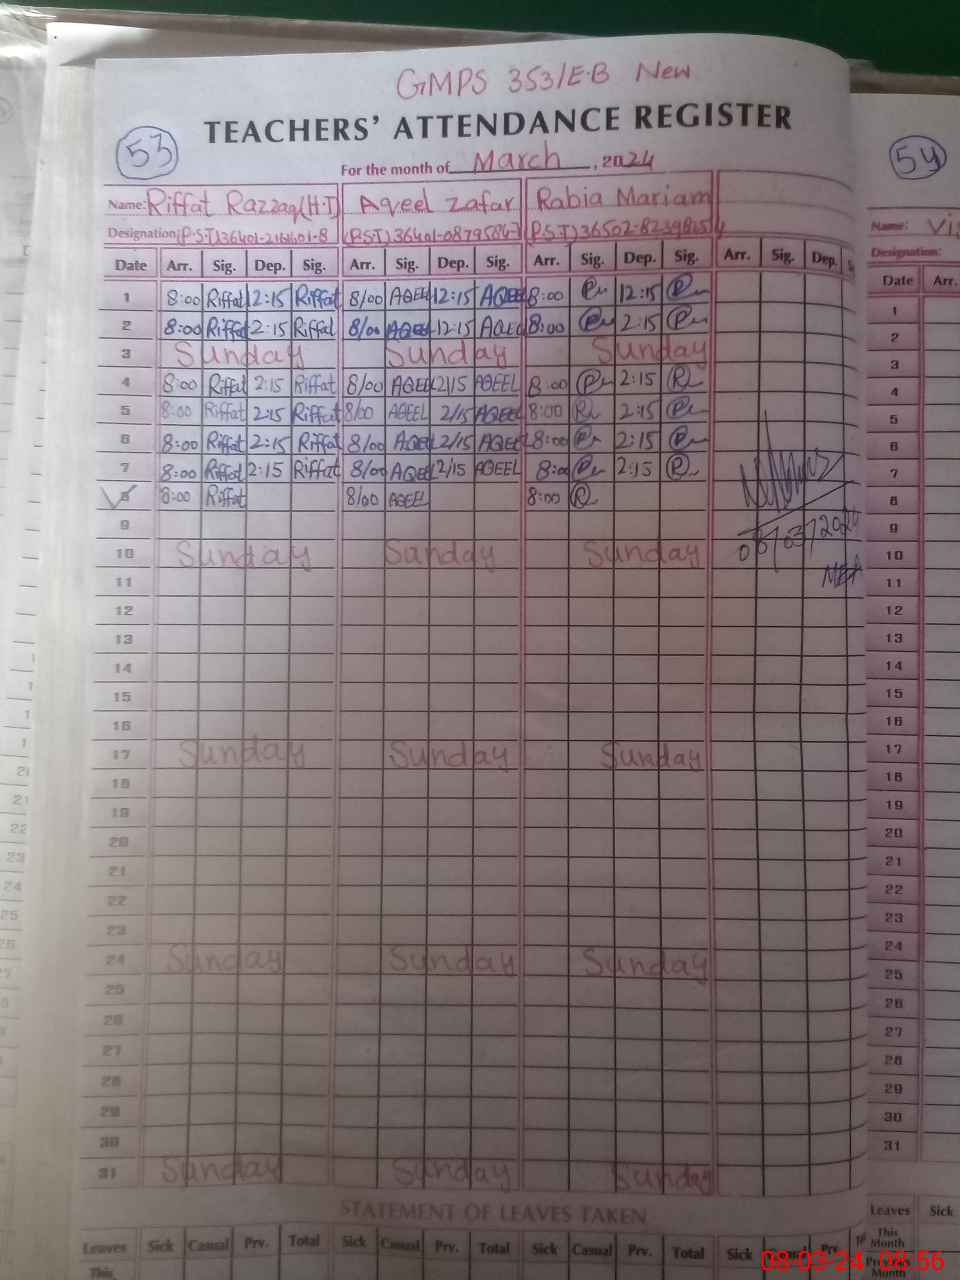 GMPS 353/E-B New
TEACHERS' ATTENDANCE REGISTER
53
54
For the month of March, 2024
Name: Riffat Razzaq (H.T) Aqeel Zafar Rabia Mariam
Name:
Designation: (P.S.T) (P.S.T) (P.S.T)
Designation:
Date Arr. Sig. Dep. Sig. Arr. Sig. Dep. Sig. Arr. Sig. Dep. Sig. Arr. Sig. Dep.
Date Arr.
1 8:00 Riffat 12:15 Riffat 8/00 AQEEL 12:15 AQEEL 8:00 12:15
2 8:00 Riffat 2:15 Riffat 8/00 AQEEL 12:15 AQEEL 8:00 2:15
3 Sunday Sunday Sunday
4 8:00 Riffat 2:15 Riffat 8/00 AQEEL 2/15 AQEEL 8:00 2:15
5 8:00 Riffat 2:15 Riffat 8/00 AQEEL 2/15 AQEEL 8:00 2:15
6 8:00 Riffat 2:15 Riffat 8/00 AQEEL 2/15 AQEEL 8:00 2:15
7 8:00 Riffat 2:15 Riffat 8/00 AQEEL 2/15 AQEEL 8:00 2:15
8 8:00 Riffat 8/00 AQEEL 8:00
9
10 Sunday Sunday Sunday
11
12
13
14
15
16
17 Sunday Sunday Sunday
18
19
20
21
22
23
24 Sunday Sunday Sunday
25
26
27
28
29
30
31 Sunday Sunday Sunday
1
2
3
4
5
6
7
8
9
10
11
12
13
14
15
16
17
18
19
20
21
22
23
24
25
26
27
28
29
30
31
STATEMENT OF LEAVES TAKEN
Leaves Sick Casual Prv. Total Sick Casual Prv. Total Sick Casual Prv. Total Sick Casual Prv.
This
Leaves Sick
This
Month
Month
08-03-24 08:56